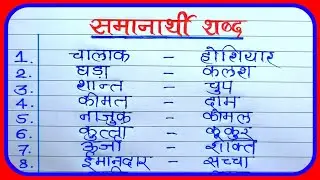 समानार्थी शब्द
1. चालाक – होशियार
2. घड़ा – कलश
3. शान्त – चुप
4. कीमत – दाम
5. नाजुक – कोमल
6. कुत्ता – कूकुर
7. ऊर्जा – शक्ति
8. ईमानदार – सच्चा